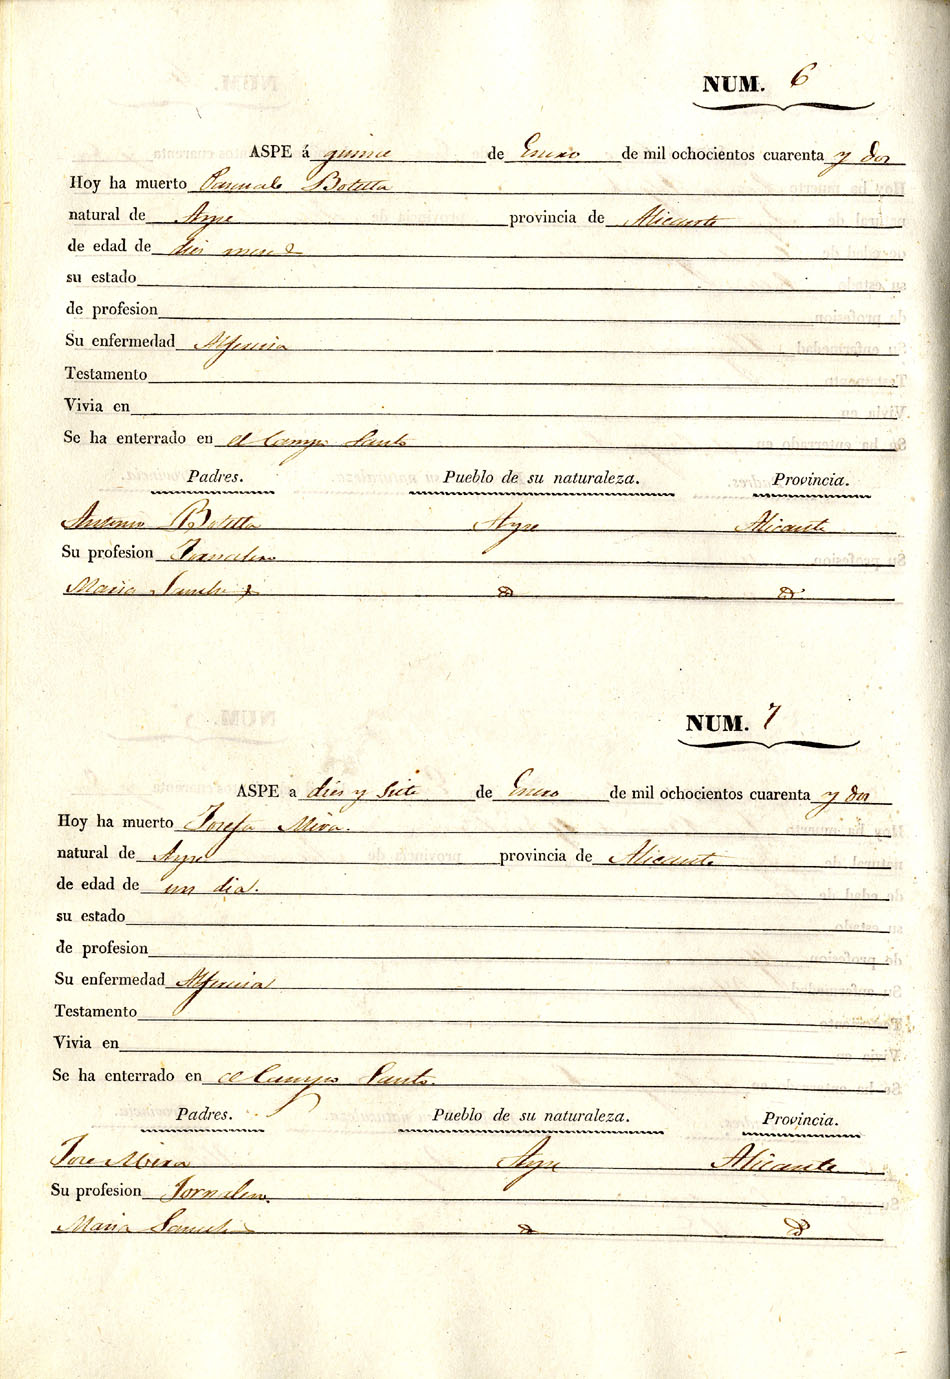 NUM. 6
ASPE á quince de Enero de mil ochocientos cuarenta y dos
Hoy ha muerto Pascuala Botella
natural de Aspe provincia de Alicante
de edad de dies meses
su estado
de profesion
Su enfermedad Alferecia
Testamento
Vivia en
Se ha enterrado en el Campo Santo
Padres. Pueblo de su naturaleza. Provincia.
Antonio Botella Aspe Alicante
Su profesion Jornalero
Maria Sanches
NUM. 7
ASPE a dies y siete de Enero de mil ochocientos cuarenta y dos
Hoy ha muerto Josefa Mira.
natural de Aspe provincia de Alicante
de edad de un dia.
su estado
de profesion
Su enfermedad Alferecia
Testamento
Vivia en
Se ha enterrado en el Campo Santo.
Padres. Pueblo de su naturaleza. Provincia.
Jose Mira Aspe Alicante
Su profesion Jornalero.
Maria Sanches